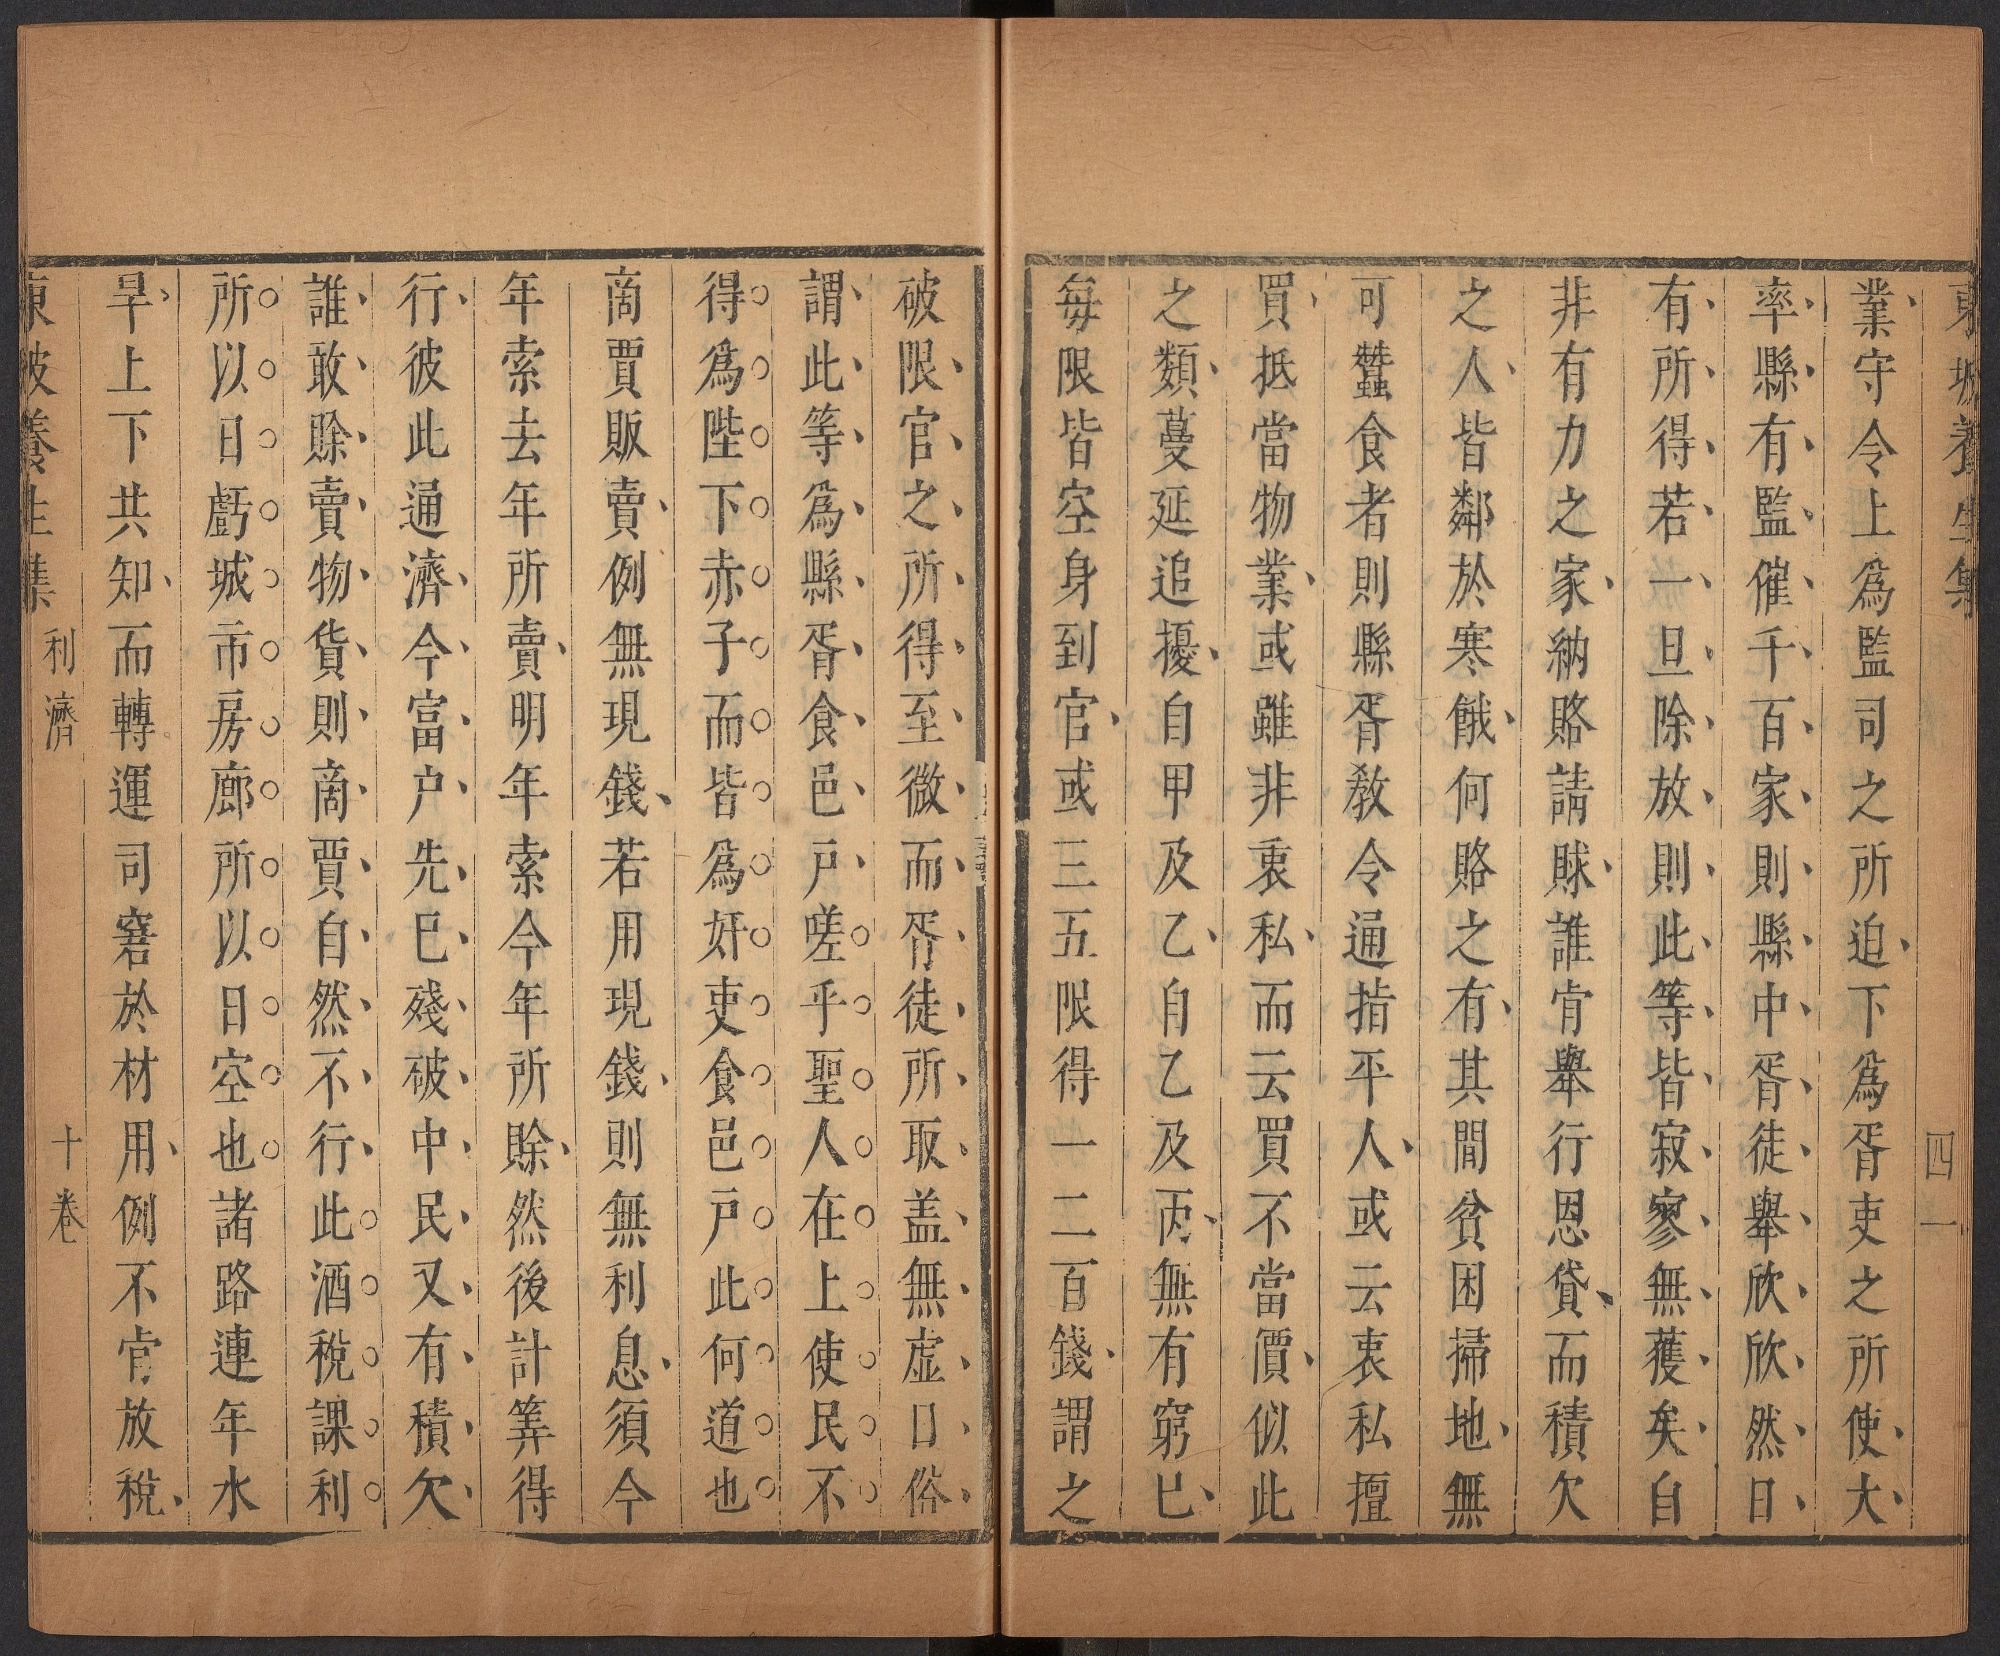 東坡養生集
四一
業守令上爲監司之所迫下爲胥吏之所使大
率縣有監催千百家則縣中胥徒舉欣欣然日
有所得若一旦除放則此等皆寂寥無獲矣自
非有力之家納賂請賕誰肯舉行恩貸而積欠
之人皆鄰於寒餓何賂之有其間貧困掃地無
可蠶食者則縣胥敎令通指平人或云衷私擅
買抵當物業或雖非衷私而云買不當價似此
之類蔓延追擾自甲及乙自乙及丙無有窮已
每限皆空身到官或三五限得一二百錢謂之
破限官之所得至微而胥徒所取盖無虛口俗
謂此等爲縣胥食邑戸嗟乎聖人在上使民不
得爲陛下赤子而皆爲奸吏食邑戸此何道也
商賈販賣例無現錢若用現錢則無利息須今
年索去年所賣明年索今年所賖然後計筭得
行彼此通濟今富户先已殘破中民又有積欠
誰敢賖賣物貨則商賈自然不行此酒稅課利
所以日虧城市房廊所以日空也諸路連年水
旱上下共知而轉運司窘於材用例不肯放稅
東坡養生集
利濟
十卷